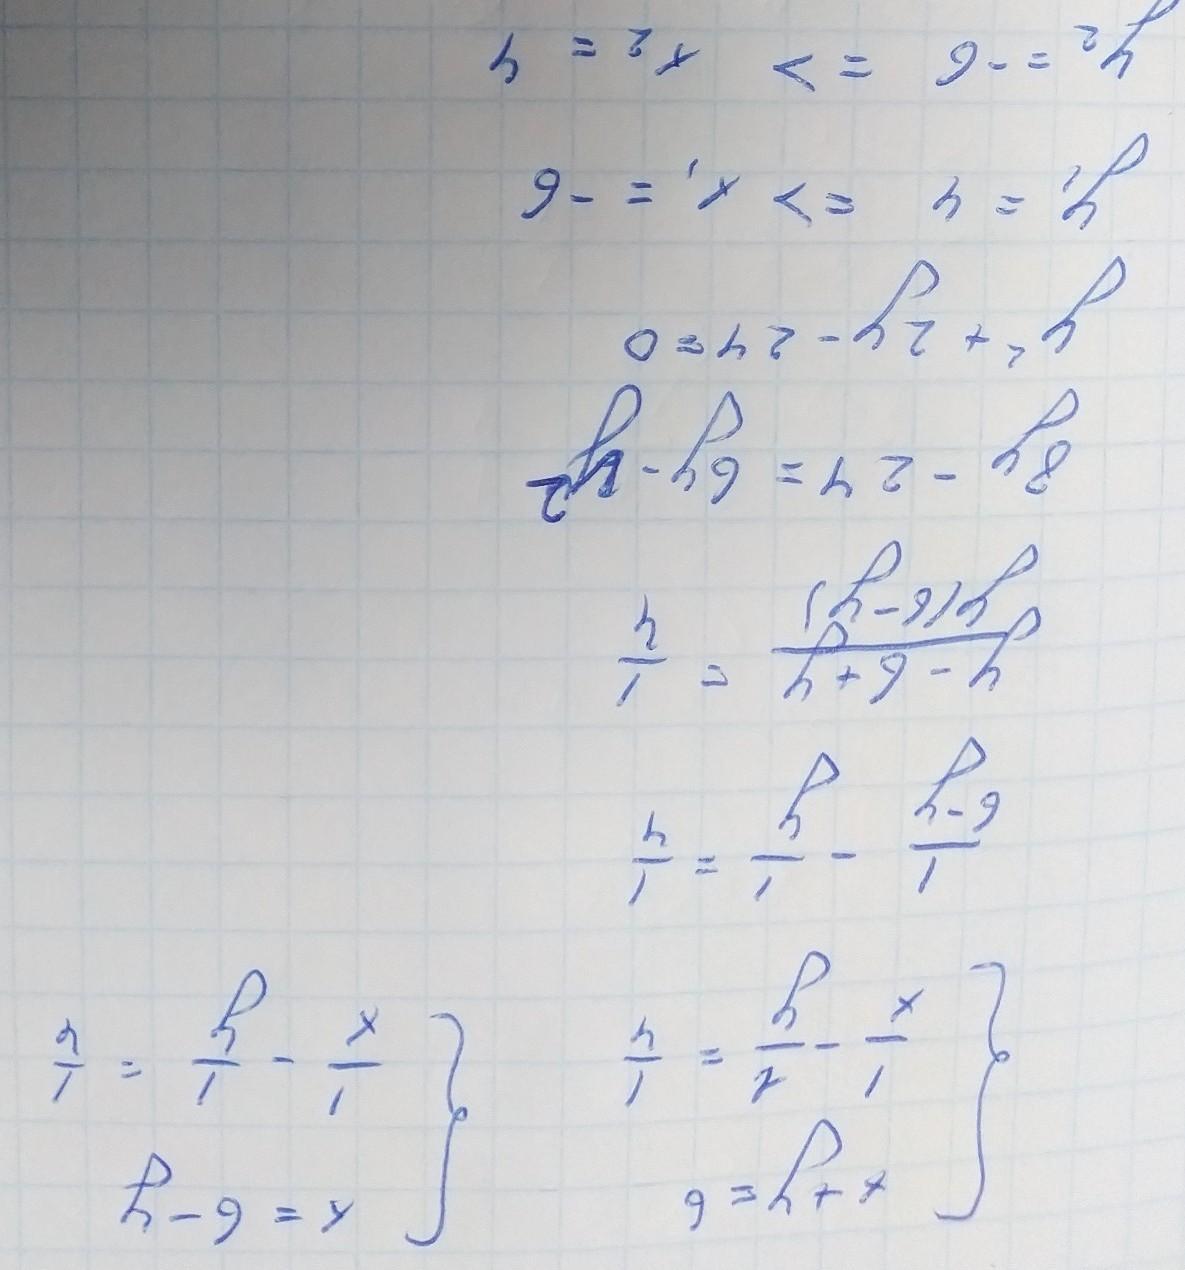 { x + y = 6 { x = 6 - y
1/x - 2/y = 1/4 1/x - 1/y = 1/4
1/(6-y) - 1/y = 1/4
(y - 6 + y)/(y(6-y)) = 1/4
8y - 24 = 6y - y²
y² + 2y - 24 = 0
y₁ = 4 => x₁ = -6
y₂ = -6 => x₂ = 4